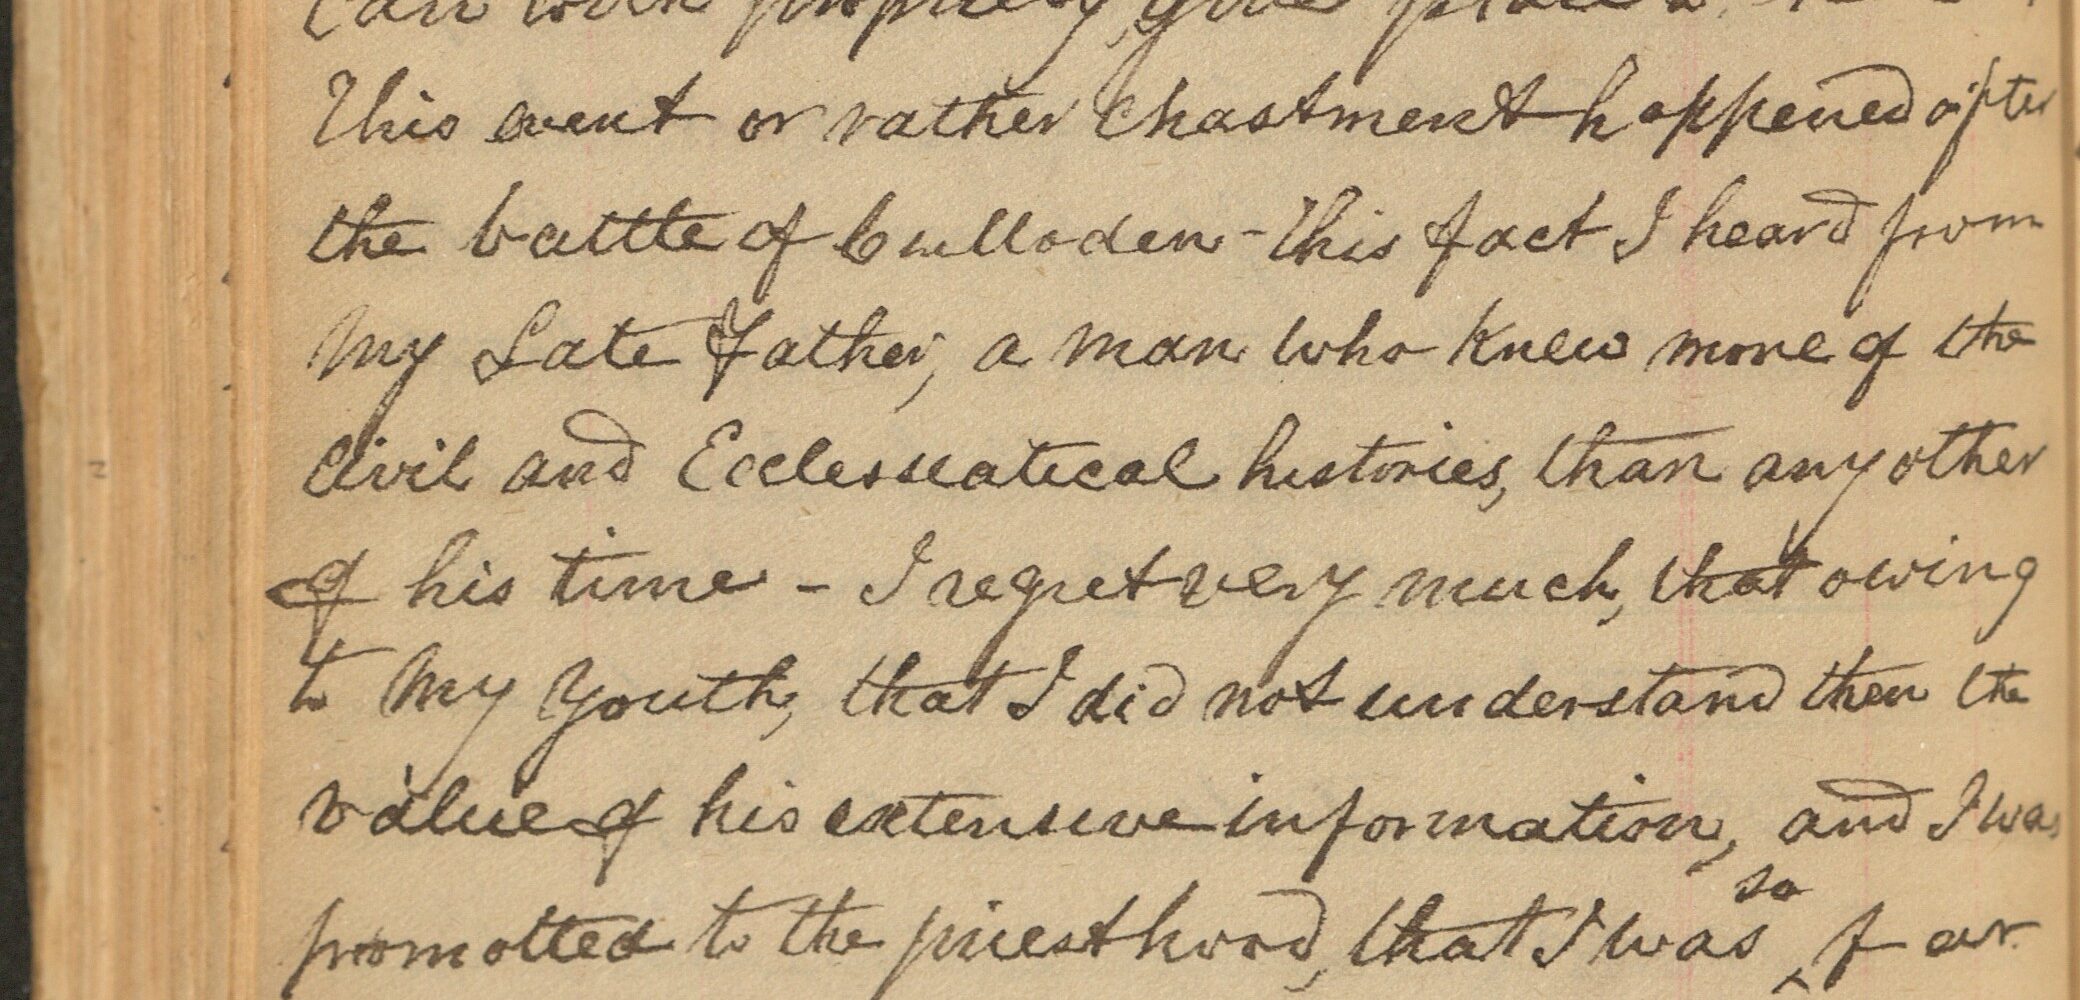 can with propriety, give place
This event or rather Chastment happened after
the battle of Culloden - This fact I heard from
My Late Father, a man who Knew more of the
Civil and Ecclesseatical histories, than any other
of his time - I regret very much, that owing
to My Youth, that I did not understand then the
value of his extensive information, and I was
promotted to the priesthood, that I was so far